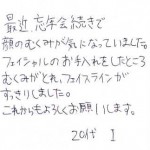 最近 忘年会続きで
顔のむくみが気になっていました。
フェイシャルのお手入れをしたところ
むくみがとれ、フェイスラインが
すっきりしました。
これからもよろしくお願いします。
20代 I